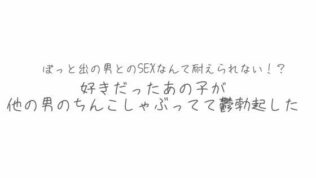 ぽっと出の男とのSEXなんて耐えられない！？
好きだったあの子が
他の男のちんこしゃぶってて鬱勃起した